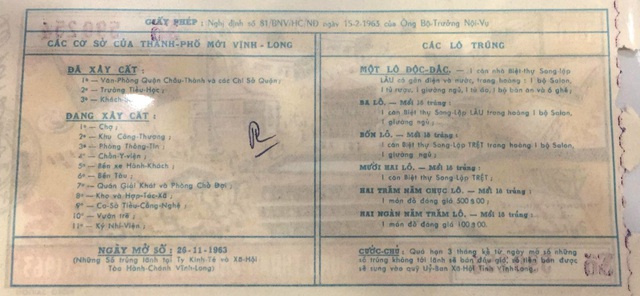 GIẤY PHÉP : Nghị định số 81/BNV/HC/NĐ ngày 15-2-1963 của Ông Bộ-Trưởng Nội-Vụ
CÁC CƠ SỞ CỦA THÀNH-PHỐ MỚI VĨNH-LONG
ĐÃ XÂY CẤT :
1º — Văn-Phòng Quận Châu-Thành và các Chi Sở Quận;
2º — Trường Tiểu-Học;
3º — Khách-
ĐANG XÂY CẤT :
1º — Chợ;
2º — Khu Công-Thương;
3º — Phòng Thông-Tin;
4º — Chẩn-Y-viện;
5º — Bến xe Hành-Khách;
6º — Bến Tàu;
7º — Quán Giải Khát và Phòng Chờ Đợi;
8º — Kho và Hợp-Tác-Xã;
9º — Cơ-Sở Tiểu-Công-Nghệ;
10º — Vườn trẻ;
11º — Ký-Nhi-Viện;
NGÀY MỞ SỐ : 26-11-1963
(Những Số trúng lãnh tại Ty Kinh-Tế và Xã-Hội
Tòa Hành-Chánh Vĩnh-Long)
CÁC LÔ TRÚNG
MỘT LÔ ĐỘC-ĐẮC. — 1 căn nhà Biệt thự Song-lập
LẦU có gắn điện và nước, trang hoàng : 1 bộ Salon,
1 tủ rượu, 1 giường ngủ, 1 tủ áo, 1 bộ bàn ăn và 6 ghế;
BA LÔ. — Mỗi lô trúng :
1 căn Biệt thự Song-lập LẦU trang hoàng 1 bộ Salon,
1 giường ngủ;
BỐN LÔ. — Mỗi lô trúng :
1 căn Biệt thự Song-Lập TRỆT trang hoàng 1 bộ Salon,
1 giường ngủ;
MƯỜI HAI LÔ. — Mỗi lô trúng :
1 căn Biệt thự Song-Lập TRỆT;
HAI TRĂM NĂM CHỤC LÔ. — Mỗi lô trúng :
1 món đồ đáng giá 500$00;
HAI NGÀN NĂM TRĂM LÔ. — Mỗi lô trúng :
1 món đồ đáng giá 100$00.
CƯỚC-CHÚ : Quá hạn 3 tháng kể từ ngày mở số những
số trúng không tới lãnh sẽ bán đấu giá, số tiền bán được
sẽ sung vào quỹ Uỷ-Ban Xã-Hội Tỉnh Vĩnh-Long.